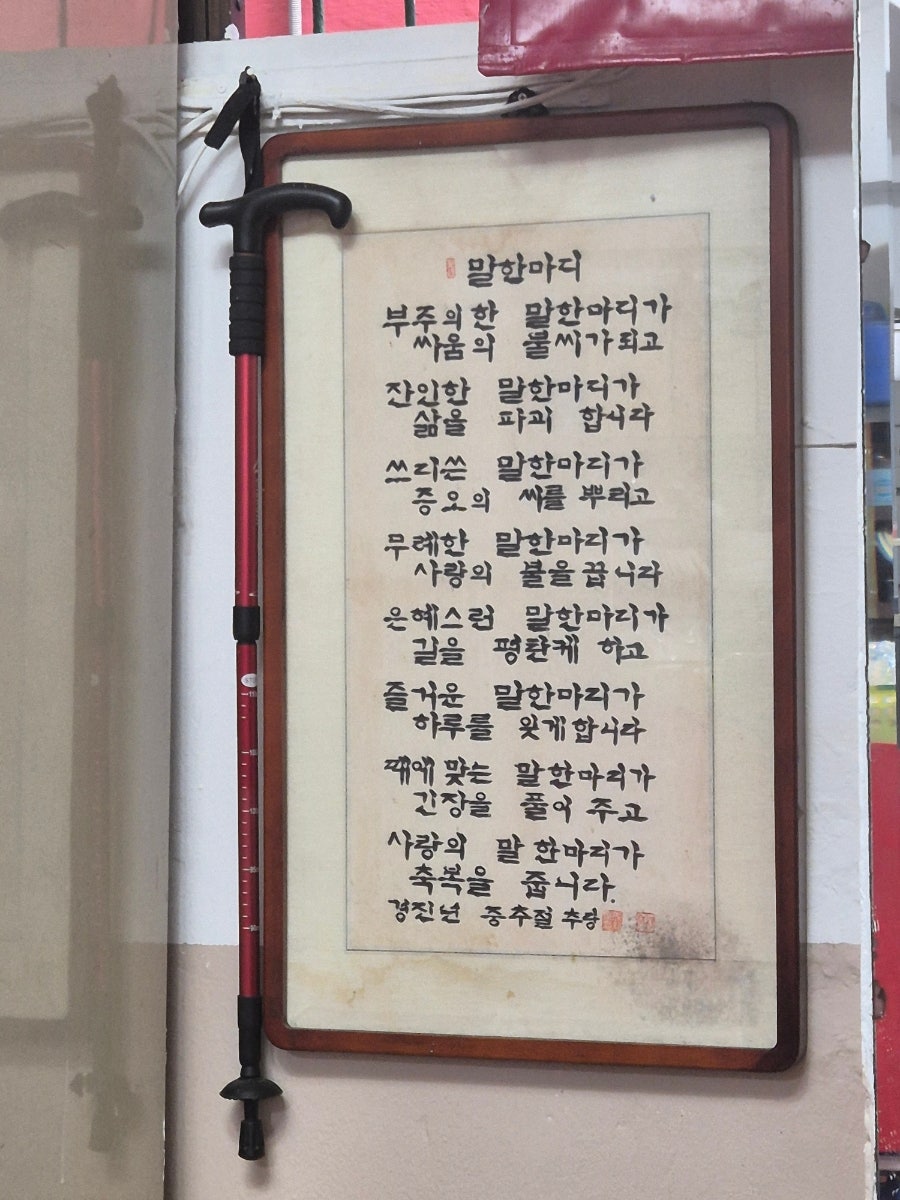 말한마디
부주의한 말한마디가
싸움의 불씨가되고
잔인한 말한마디가
삶을 파괴 합니다
쓰디쓴 말한마디가
증오의 씨를 뿌리고
무례한 말한마디가
사랑의 불을 끕니다
은혜스런 말한마디가
길을 평탄케 하고
즐거운 말한마디가
하루를 윗게합니다
때에 맞는 말한마디가
긴장을 풀어 주고
사랑의 말 한마디가
축복을 줍니다.
경진년 중추절 추당